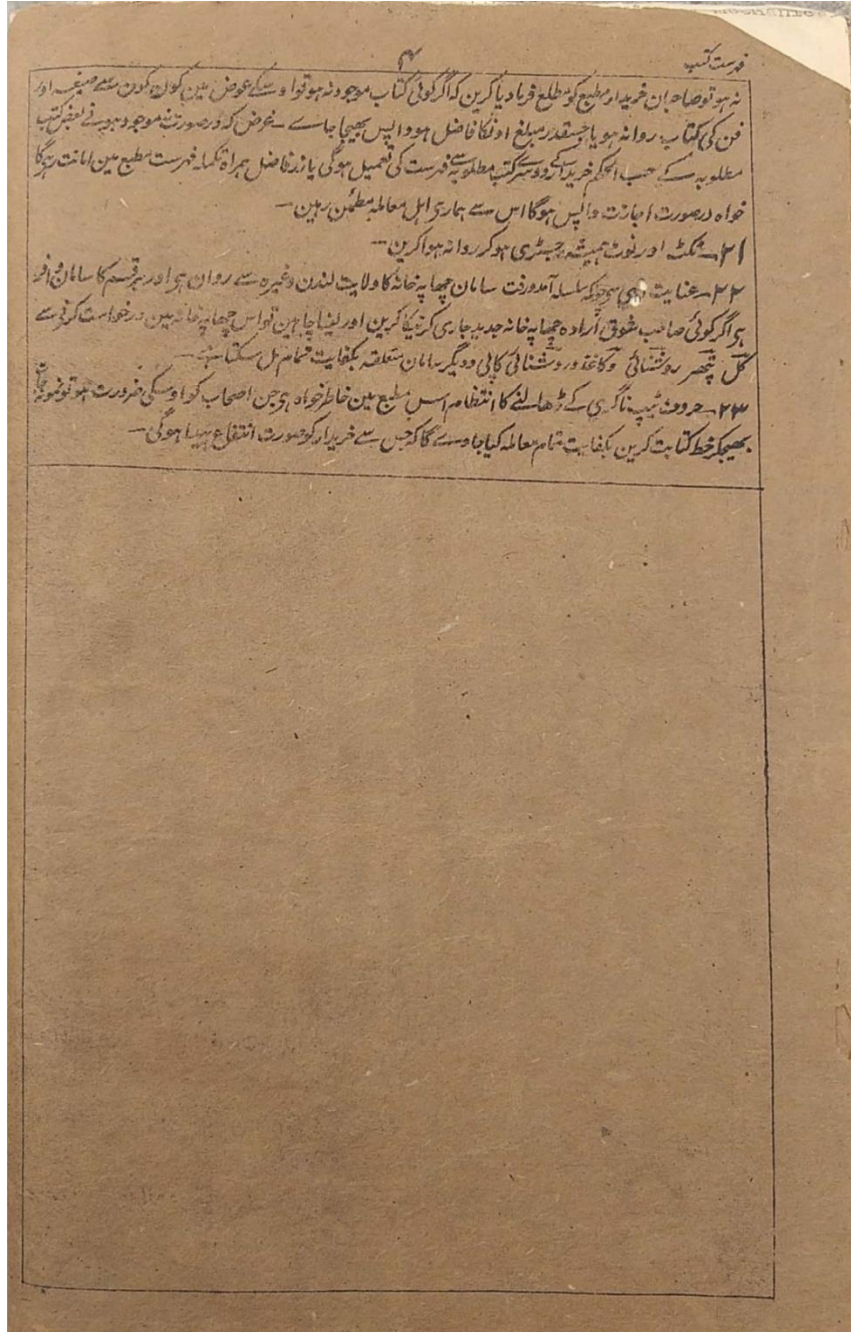 فہرست کتب
۴
نہ ہو تو صاحبان خریدار مطبع کو مطلع فرما دیا کرین کہ اگر کوئی کتاب موجود نہ ہو تو اوسکے عوض مین کون کون سے صیغہ اور
فن کی کتاب روانہ ہو یا جسقدر مبلغ اونکا فاضل ہو واپس بھیجا جاے ۔ غرض کہ درصورت نہ موجود ہونے بعض کتب
مطلوبہ کے حسب الحکم خریدار کے دوسرے کتب مطلوبہ سے فہرست کی تعمیل ہوگی یا زر فاضل ہمراہ تکملہ فہرست مطبع مین امانت رہیگا
خواہ درصورت اجازت واپس ہوگا اس سے ہماری اہل معاملہ مطمئن رہین ۔
۲۱۔ ٹکٹ اور نوٹ ہمیشہ رجسٹری ہوکر روانہ ہوا کرین ۔
۲۲۔ عنایت سلسلہ آمدورفت سامان چھاپہ خانہ کا ولایت لندن وغیرہ سے روان ہی اور ہر قسم کا سامان وافر
ہی اگر کوئی صاحب شوق ارادہ چھاپہ خانہ جدید جاری کرنیکا کرین اور لینا چاہین تو اس چھاپہ خانہ مین درخواست کرنے سے
کل پتھر روشنائی و کاغذ و روشنائی کاپی و دیگر سامان متعلقہ بکفایت تمام مل سکتا ہے ۔
۲۳۔ حروف ٹیپ ناگری کے ڈھالنے کا انتظام اس مطبع مین خاطر خواہ ہی جن اصحاب کو اوسکی ضرورت ہو تو نمونہ
بھیجکر خط کتابت کرین بکفایت تمام معاملہ کیا جاوے گا کہ جس سے خریدار کو صورت انتفاع پیدا ہوگی ۔